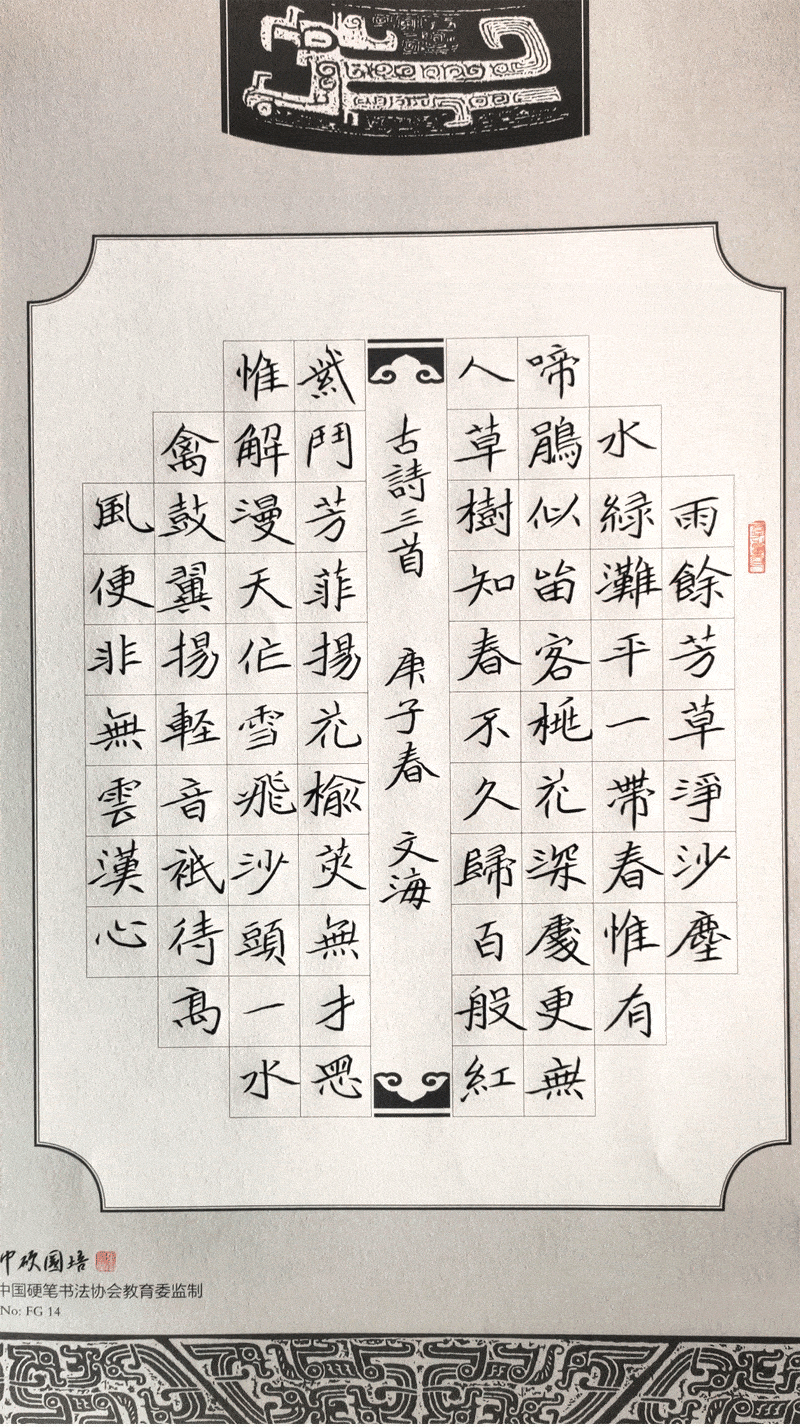 雨餘芳草淨沙塵
水緑灘平一帶春惟有
啼鵑似畄客桃花深處更無
人草樹知春不久歸百般紅
古詩三首 庚子春 文海
紫鬥芳菲揚花榆莢無才思
惟解漫天作雪飛沙頭一水
禽鼓翼揚軽音祇待髙
風便非無雲漢心
中硬国培
中国硬笔书法协会教育委监制
No: FG 14